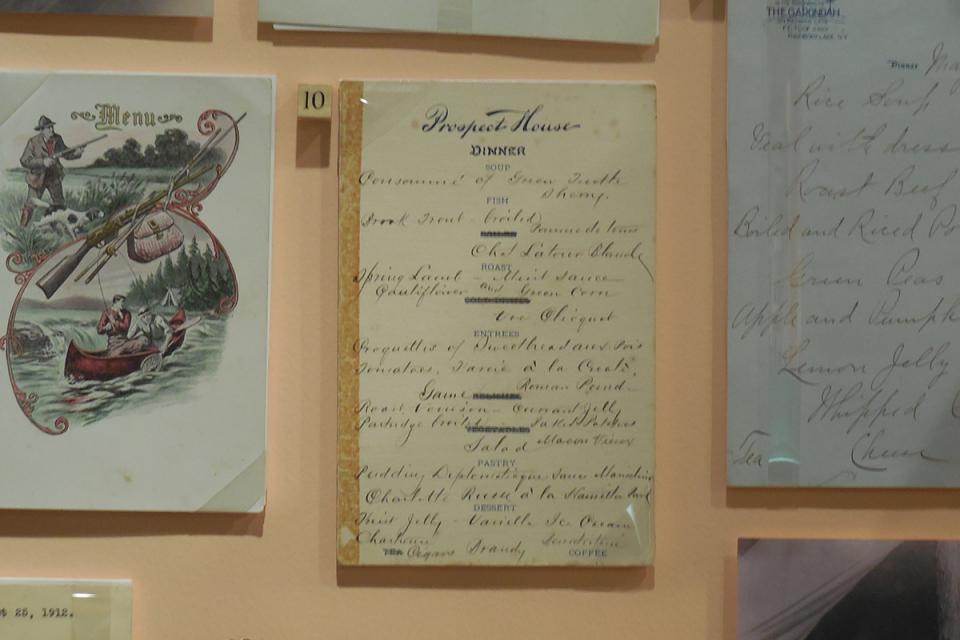 Menu
10
Prospect House
DINNER
SOUP
Consommé of Green Turtle
Sherry.
FISH
Brook Trout - broiled
Pomme de terre
Chat Latour Blanche
ROAST
Spring Lamb - Mint Sauce
Cauliflower and Green Corn
Clicquot
ENTREES
Croquettes of Sweetbread aux Pois
Tomatoes, Farcie à la
Roman Punch
Game
Roast Venison - Currant Jelly
Partridge broiled
Salad
PASTRY
Pudding Diplomatique Sauce
Charlotte Russe à la Hamilton Park
DESSERT
Fruit Jelly - Vanilla Ice Cream
Chartreuse
Benedictine
TEA Cigars Brandy COFFEE
THE GARONDAH
Dinner
Rice Soup
Veal with dress
Roast Beef
Boiled and Riced Po
Green Peas
Apple and Pumpk
Lemon Jelly
Whipped C
Tea
Cheese
25, 1912.